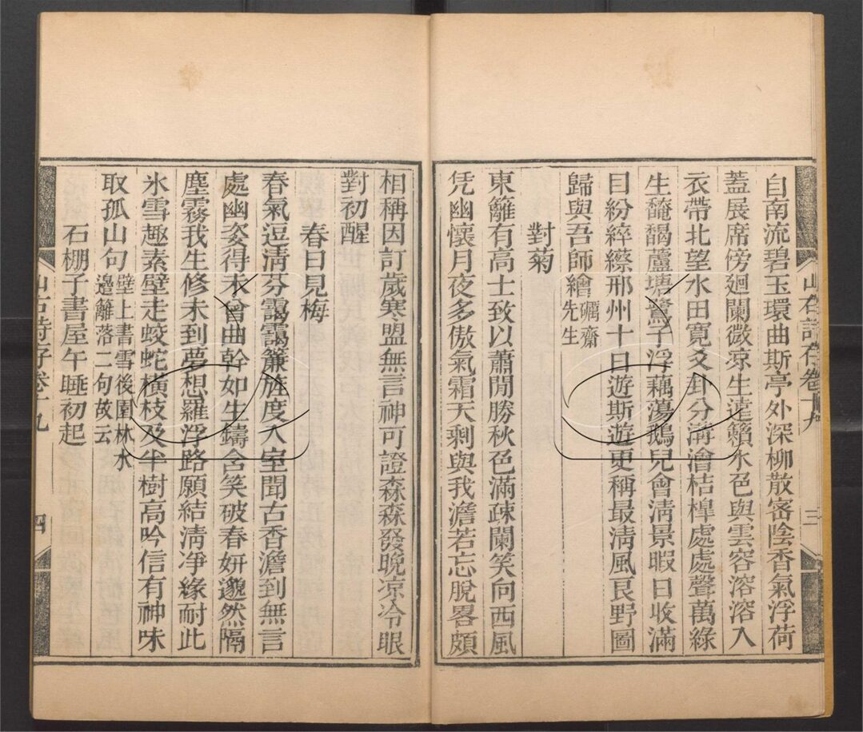 自南流碧玉環曲斯亭外深柳散密陰香氣浮荷
蓋展席傍迴闌微凉生達籟水色與雲容溶溶入
衣帶北望水田寛爻卦分溝澮桔槹處處聲萬綠
生馣馤蘆塘鷺子浮藕蕩鵝兒會清景暇日收滿
目紛綷縩邢州十日遊斯遊更稱最清風良野圖
歸與吾師繪礪齋先生
對菊
東籬有高士致以蕭閒勝秋色滿疎闌笑向西風
凭幽懷月夜多傲氣霜天剩與我澹若忘脫畧頗
山右詩存卷十九
三
相稱因訂歲寒盟無言神可證森森發晚凉冷眼
對初醒
春日見梅
春氣逗清芬靄靄簾旌度入室聞古香澹到無言
處幽姿得未曾曲幹如生鑄含笑破春妍邈然隔
塵霧我生修未到夢想羅浮路願結清净緣耐此
氷雪趣素壁走蛟蛇橫枝及半樹高吟信有神味
取孤山句壁上書雪後園林水邊籬落二句故云
石棚子書屋午睡初起
山右詩存卷十九
四